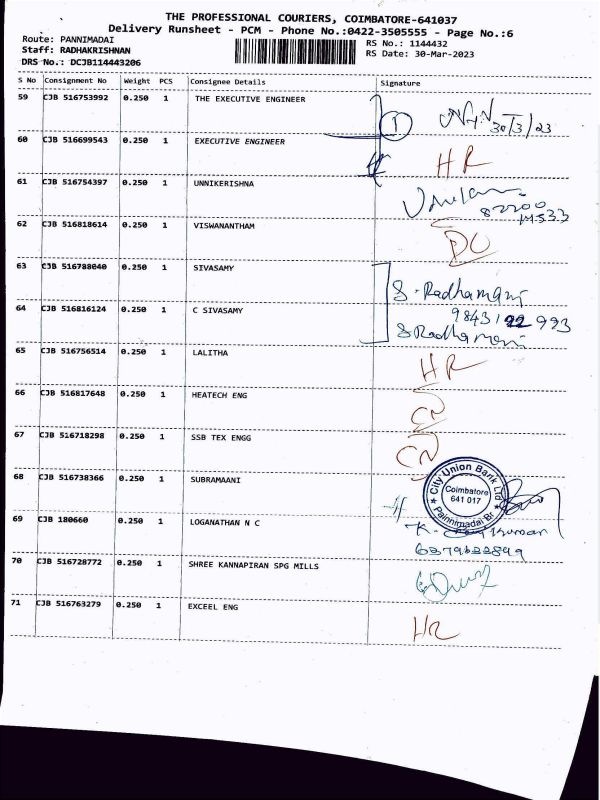 THE PROFESSIONAL COURIERS, COIMBATORE-641037
Delivery Runsheet - PCM - Phone No.:0422-3505555 - Page No.:6
Route: PANNIMADAI
Staff: RADHAKRISHNAN
DRS No.: DCJB114443206
RS No.: 1144432
RS Date: 30-Mar-2023
S No Consignment No Weight PCS Consignee Details Signature
59 CJB 516753992 0.250 1 THE EXECUTIVE ENGINEER
1 30/3/23
60 CJB 516699543 0.250 1 EXECUTIVE ENGINEER HR
61 CJB 516754397 0.250 1 UNNIKERISHNA
62 CJB 516818614 0.250 1 VISWANANTHAM DC
63 CJB 516788040 0.250 1 SIVASAMY S. Radhamani
64 CJB 516816124 0.250 1 C SIVASAMY 9843122993
S Radhamani
65 CJB 516756514 0.250 1 LALITHA HR
66 CJB 516817648 0.250 1 HEATECH ENG
67 CJB 516718298 0.250 1 SSB TEX ENGG
68 CJB 516738366 0.250 1 SUBRAMAANI
City Union Bank Ltd
Coimbatore
641 017
Painnimadai Br
69 CJB 180660 0.250 1 LOGANATHAN N C
70 CJB 516728772 0.250 1 SHREE KANNAPIRAN SPG MILLS
71 CJB 516763279 0.250 1 EXCEEL ENG HR